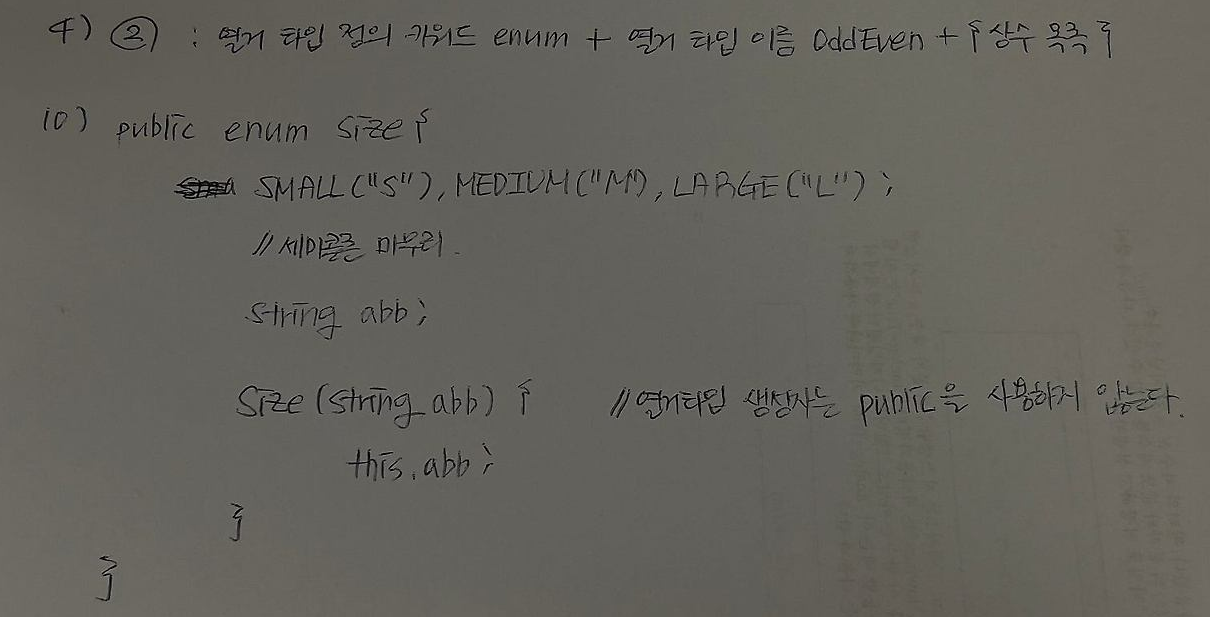 4) ② : 열거 타입 정의 키워드 enum + 열거 타입 이름 OddEven + { 상수 목록 }
10) public enum size {
SMALL("S"), MEDIUM("M"), LARGE("L");
// 세미콜론 마무리.
string abb;
Size (string abb) { // 열거타입 생성자는 public을 사용하지 않는다.
this.abb;
}
}